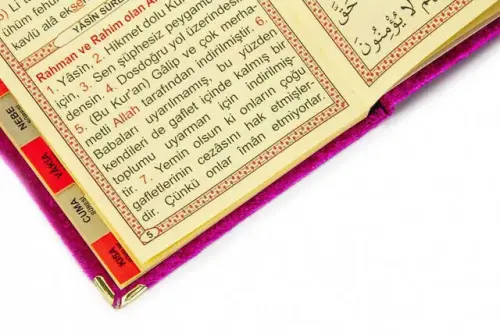 ühüm fehum
kavlü alâ
YÂSİN SÛRE
Rahman ve Rahim olan
1. Yâsîn. 2. Hikmet dolu
için. 3. Sen şüphesiz peygamb
densin. 4. Dosdoğru yol üzerinde
5. (Bu Kur'an) Gâlip ve çok merha-
metli Allah tarafından indirilmiştir. 6.
Babaları uyarılmamış, bu yüzden
kendileri de gaflet içinde kalmış bir
toplumu uyarman için indirilmiş-
tir. 7. Yemin olsun ki onların çoğu
gafletlerinin cezâsını hak etmişler-
dir. Çünkü onlar îmân etmiyorlar.
5
NEBE
VÂKIA
CUMA
SÛRESİ
KISA
لَا يُؤْمِنُونَ